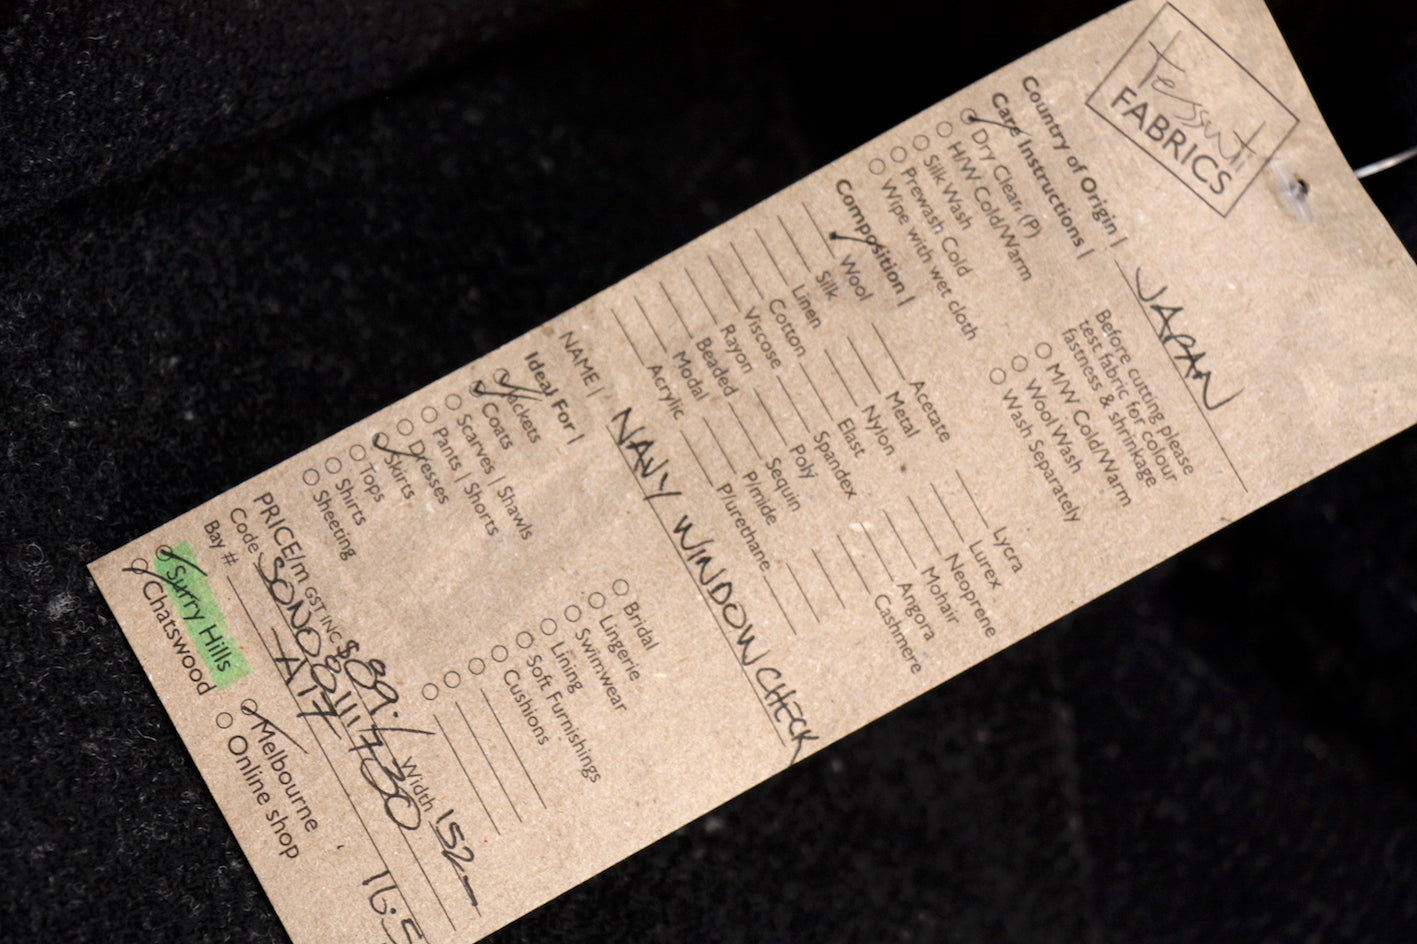 tessuti
FABRICS
Country of Origin | JAPAN
Care Instructions |
Dry Clean (P)
H/W Cold/Warm
Silk Wash
Prewash Cold
Wipe with wet cloth
Before cutting please
test fabric for colour
fastness & shrinkage
M/W Cold/Warm
Wool Wash
Wash Separately
Composition |
Wool
Silk
Linen
Cotton
Viscose
Rayon
Beaded
Modal
Acrylic
Acetate
Metal
Nylon
Elast
Spandex
Poly
Sequin
P/mide
P/urethane
Lycra
Lurex
Neoprene
Mohair
Angora
Cashmere
NAME | NAVY WINDOWCHECK
Ideal For |
Jackets
Coats
Scarves | Shawls
Pants | Shorts
Dresses
Skirts
Tops
Shirts
Sheeting
Bridal
Lingerie
Swimwear
Lining
Soft Furnishings
Cushions
PRICE/m GST INC $89.- Width 152
Code
Bay # A17
16.5
Surry Hills
Chatswood
Melbourne
Online shop